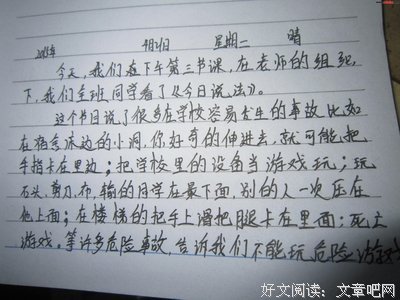 2015年 9月21日 星期一 晴
今天,我们在下午第三节课,在老师的组织
下,我们全班同学看了《今日说法》。
这个节目说了很多在学校容易发生的事故比如
在宿舍床边的小洞,你好奇的伸进去,就可能把
手指卡在里边;把学校里的设备当游戏玩;玩
石头、剪刀、布,输的同学在最下面,别的人一次压在
他上面;在楼梯的把手上滑把腿卡在里面;死亡
游戏。等许多危险事故,告诉我们不能玩危险游戏
好文阅读:文章吧网